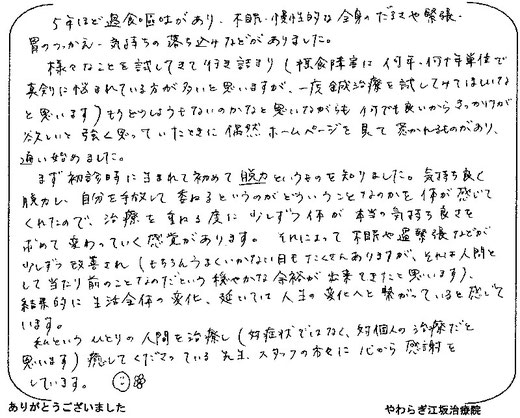 5年ほど過食嘔吐があり、不眠・慢性的な全身のだるさや緊張・
胃のつかえ・気持ちの落ち込みなどがありました。
様々なことを試してきて行き詰まり(摂食障害に何年、何十年単位で
真剣に悩まされている方が多いと思いますが、一度鍼治療を試してみてほしいな
と思います)もうどうしようもないのかなと思いながらも何でも良いからきっかけが
欲しいと強く思っていたときに偶然ホームページを見て惹かれるものがあり、
通い始めました。
まず初診時に生まれて初めて脱力というものを知りました。気持ち良く
脱力し、自分を手放して委ねるというのがどういうことなのかを体が感じて
くれたので、治療を重ねる度に少しずつ体が本当の気持ち良さを
求めて変わっていく感覚があります。それによって不眠や過緊張などが
少しずつ改善され(もちろんうまくいかない日もたくさんありますが、それは人間と
して当たり前のことなのだという穏やかな余裕が出来てきたと思います)、
結果的に生活全体の変化、延いては人生の変化へと繋がっていると感じて
います。
私というひとりの人間を治療し(対症状ではなく、対個人の治療だと
思います)癒してくださっている先生、スタッフの方々に心から感謝を
しています。
ありがとうございました
やわらぎ江坂治療院